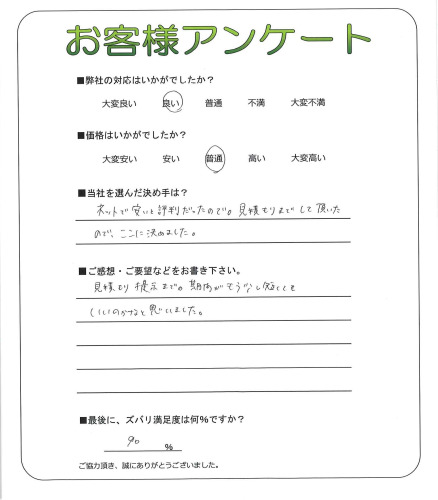 お客様アンケート
■弊社の対応はいかがでしたか？
大変良い 良い 普通 不満 大変不満
■価格はいかがでしたか？
大変安い 安い 普通 高い 大変高い
■当社を選んだ決め手は？
ネットで安いと評判だったので。見積もりまでして頂いた
ので、ここに決めました。
■ご感想・ご要望などをお書き下さい。
見積もり提示までの期間がもう少し短くても
いいのかなと思いました。
■最後に、ズバリ満足度は何％ですか？
90 ％
ご協力頂き、誠にありがとうございました。